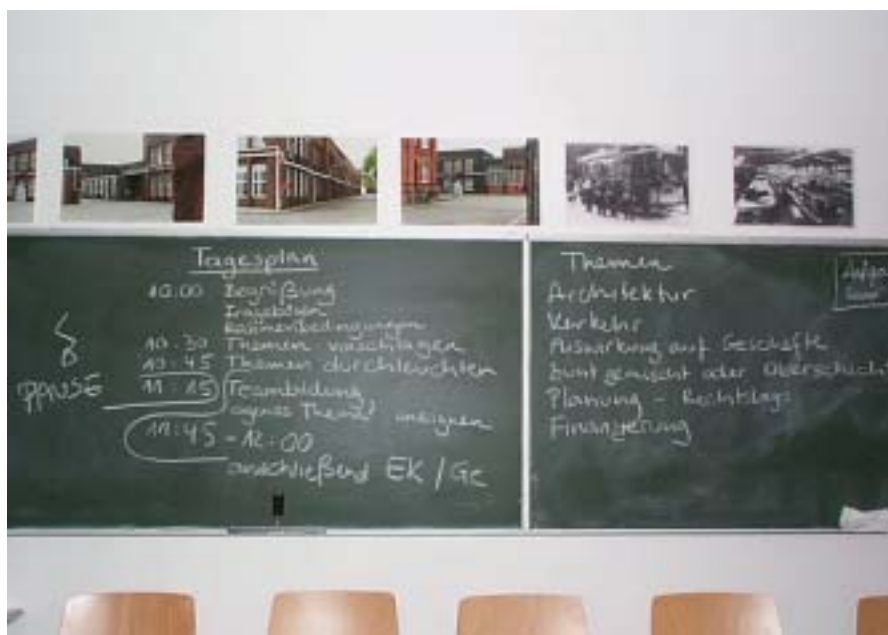 Tagesplan
10.00 Begrüßung
Rahmenbedingungen
10.30 Themen vorschlagen
10:45 Themen durchleuchten
PAUSE
11:15 Teambildung
eigenes Thema
11:45 - 12:00
anschließend EK / Ge
Themen
Architektur
Verkehr
Auswirkung auf Geschäfte
bunt gemischt oder Oberschicht
Planung - Rechtslage
Finanzierung